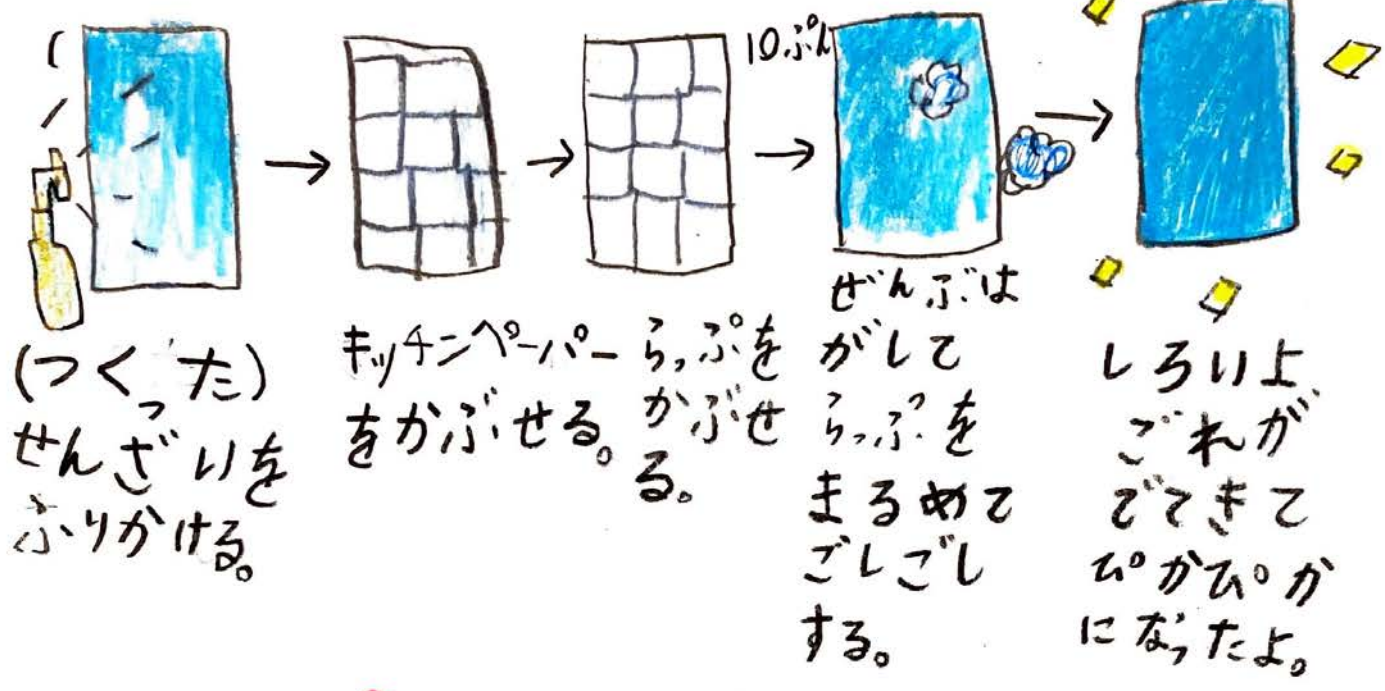 (つくった)
せんざいを
ふりかける。
キッチンペーパー
をかぶせる。
らっぷを
かぶせ
る。
10ぷん
ぜんぶは
がして
らっぷを
まるめて
ごしごし
する。
しろいよ
ごれが
でてきて
ぴかぴか
になったよ。